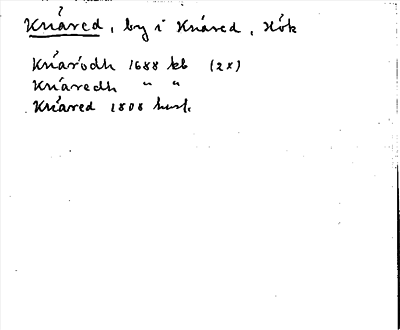 Knäred, by i Knäred, Hök
Knärödh 1688 kb (2x)
Knäredh " "
Knäred 1808 husf.